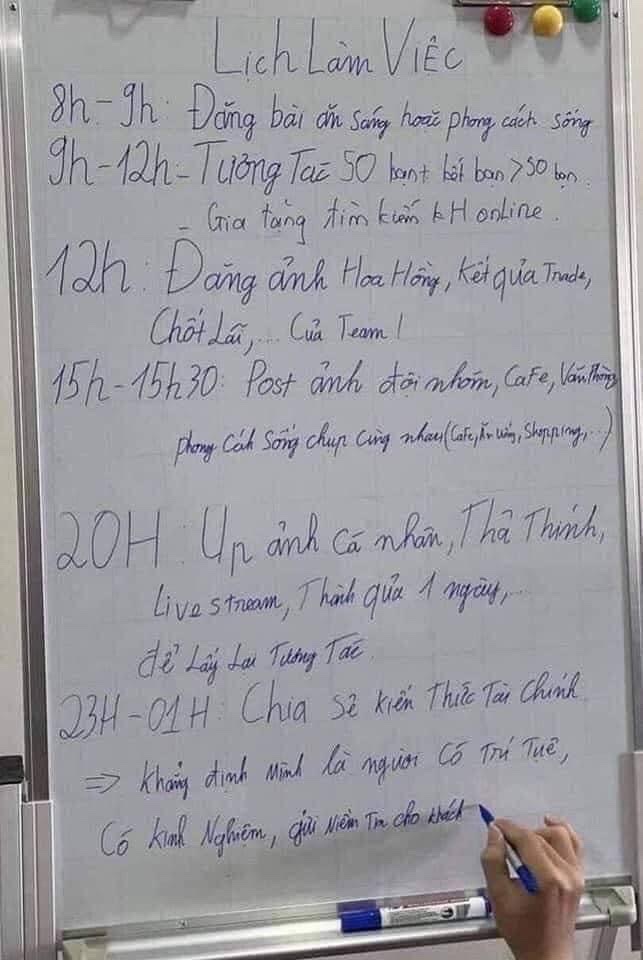 Lịch Làm Việc
8h-9h: Đăng bài ăn sáng hoặc phong cách sống
9h-12h- Tương Tác 50 bạn + kết bạn > 50 bạn.
Gia tăng tìm kiếm KH online.
12h: Đăng ảnh Hoa Hồng, kết quả Trade,
Chốt Lãi,... Của Team!
15h-15h30: Post ảnh đội nhóm, Cafe, Văn Phòng
phong Cách Sống chụp cùng nhau (Cafe, Ăn Uống, Shopping,...)
20H: Up ảnh cá nhân, Thả Thính,
Livestream, Thành quả 1 ngày,...
để Lấy Lại Tương Tác.
23H-01H: Chia Sẻ Kiến Thức Tài Chính.
⇒ Khẳng định Mình là người Có Trí Tuệ,
Có Kinh Nghiệm, gửi Niềm Tin cho khách